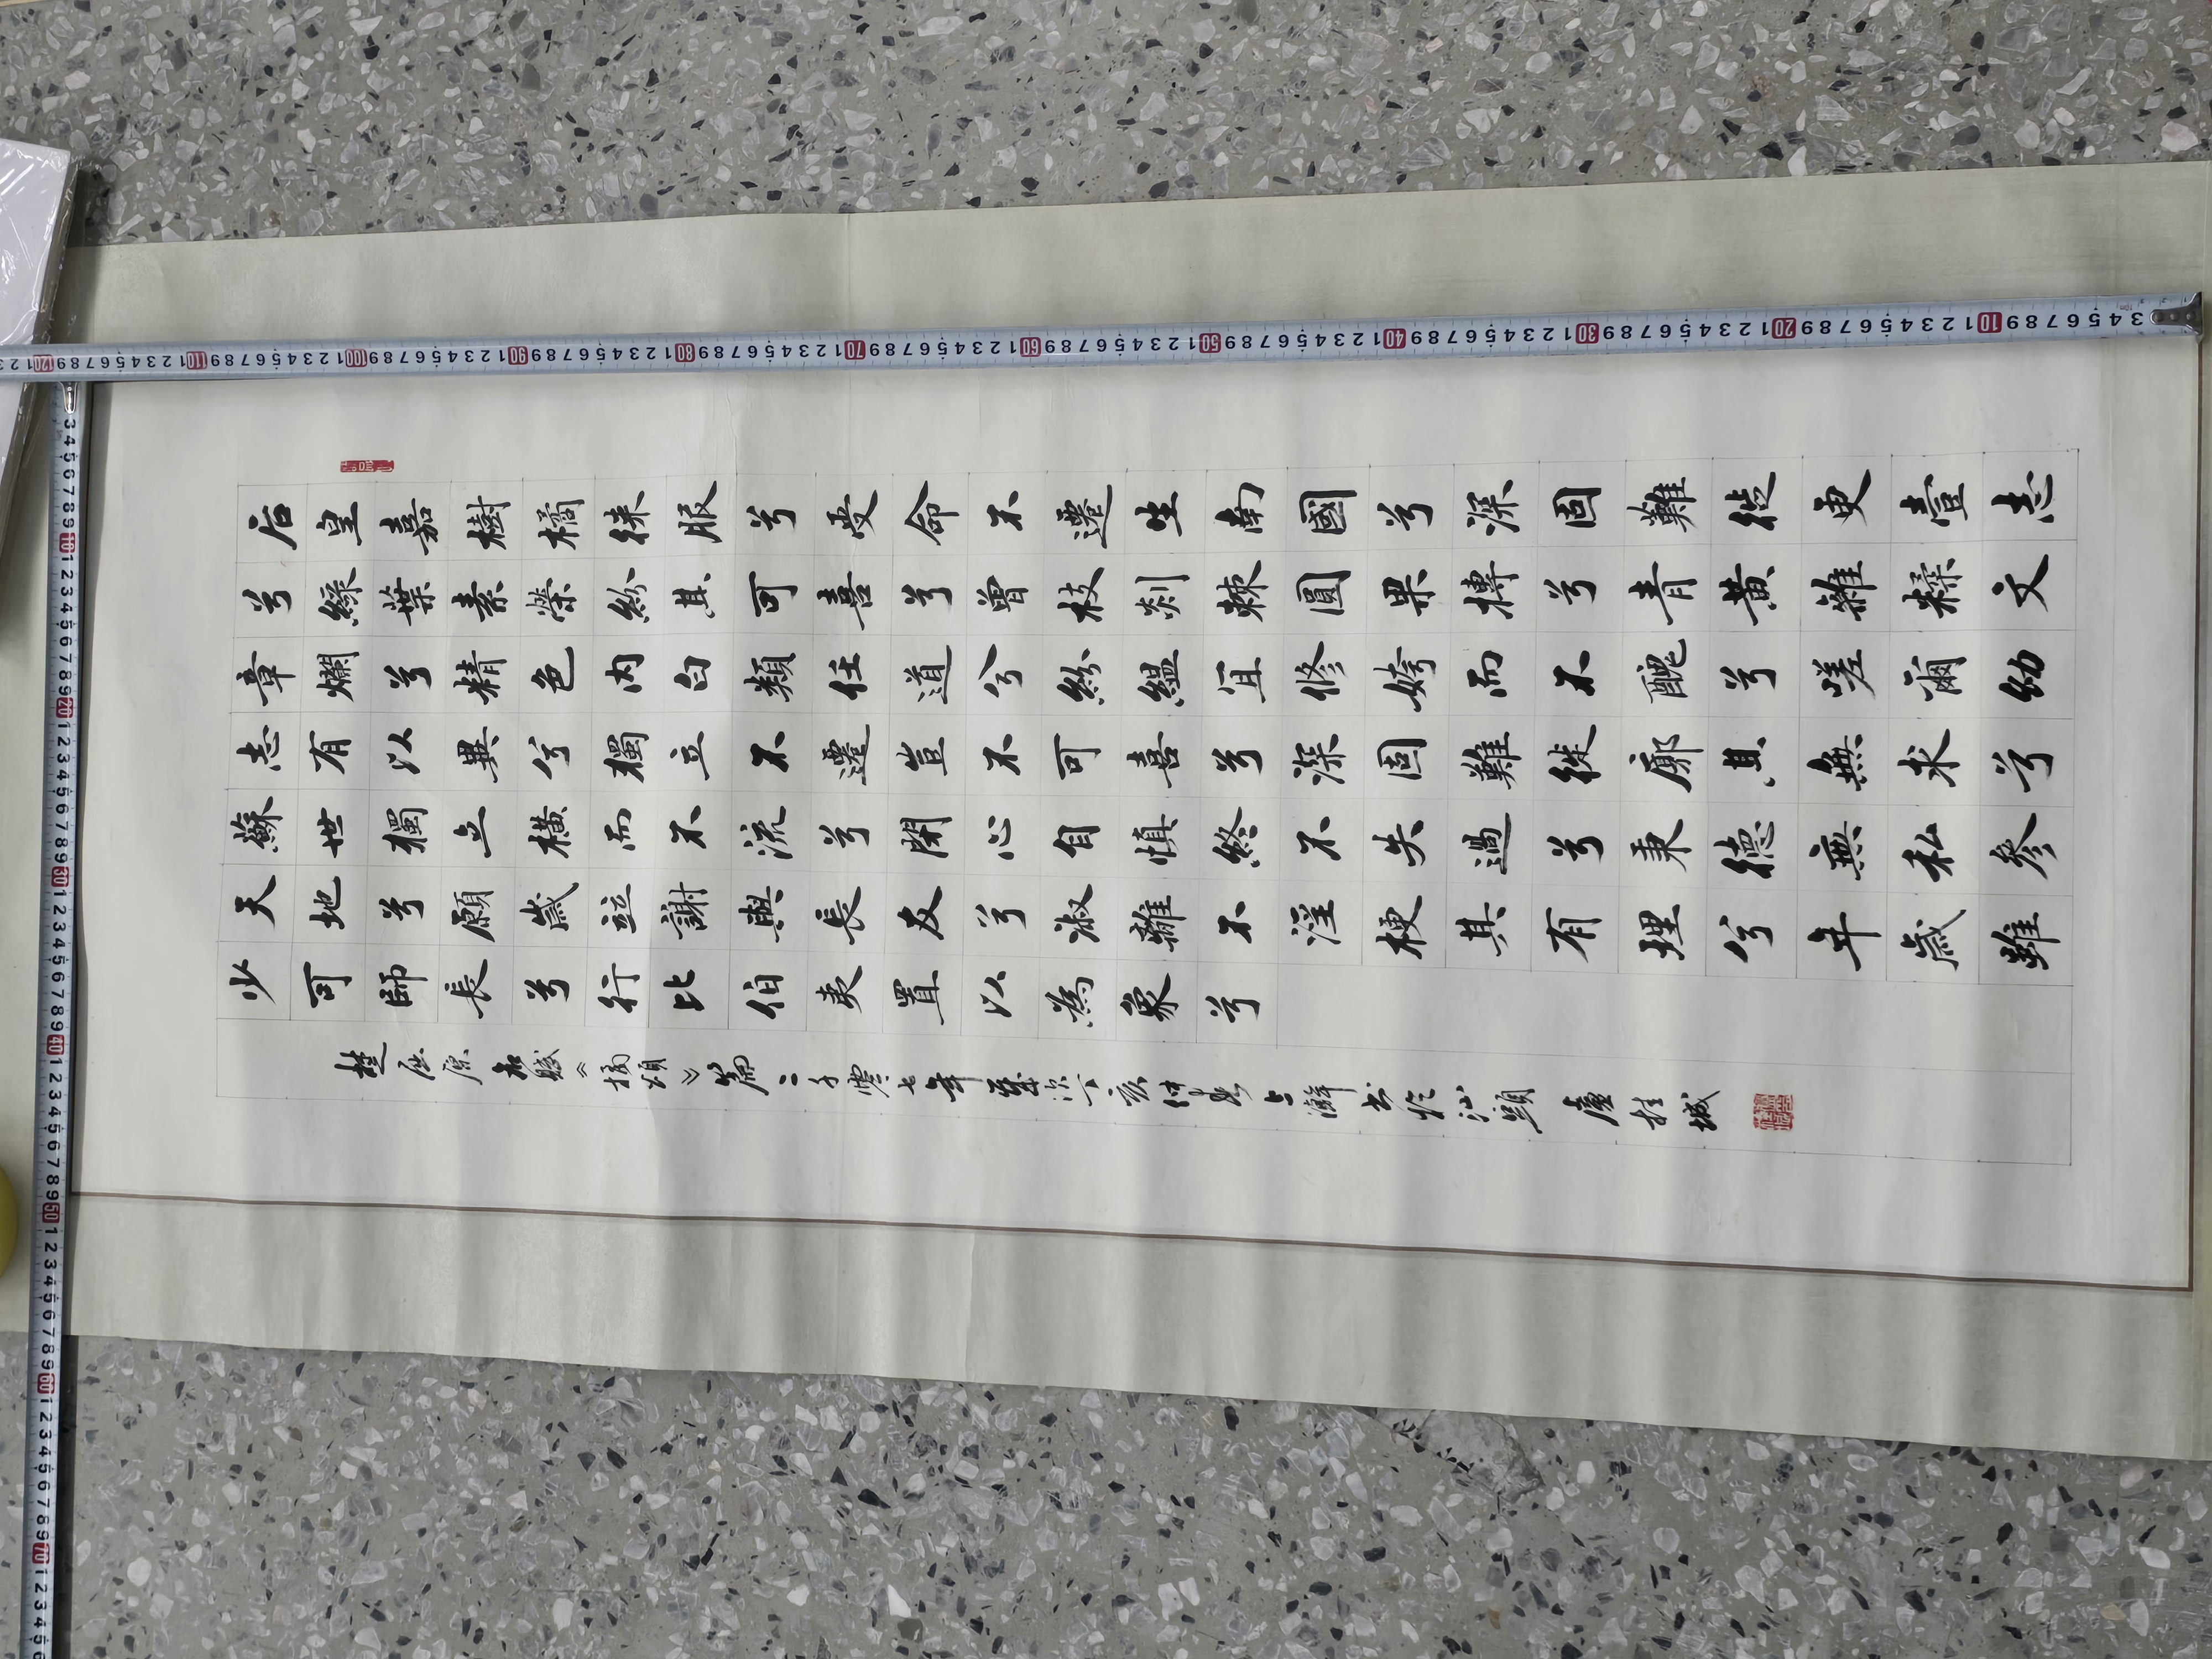 后皇嘉樹橘徠服兮受命不遷生南國兮深固難徙更壹志
兮綠葉素榮紛其可喜兮曾枝剡棘圓果摶兮青黃雜糅文
章爛兮精色內白類任道兮紛縕宜修姱而不醜兮嗟爾幼
志有以異兮獨立不遷豈不可喜兮深固難徙廓其無求兮
蘇世獨立橫而不流兮閉心自慎終不失過兮秉德無私參
天地兮願歲竝謝與長友兮淑離不淫梗其有理兮年歲雖
少可師長兮行比伯夷置以為象兮
楚屈原名賦《橘頌》篇二千零七年歲次丁亥仲春上澣書於汕頭 盧桂城